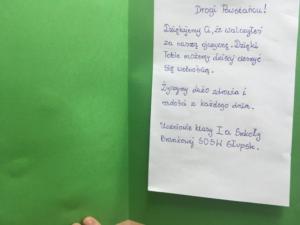 Drogi Powstańcu!
Dziękujemy Ci, że walczyłeś
za naszą ojczyznę. Dzięki
Tobie możemy dzisiaj cieszyć
się wolnością.
Życzymy dużo zdrowia i
radości z każdego dnia.
Uczniowie klasy I a Szkoły
Branżowej SOSW Słupsk.